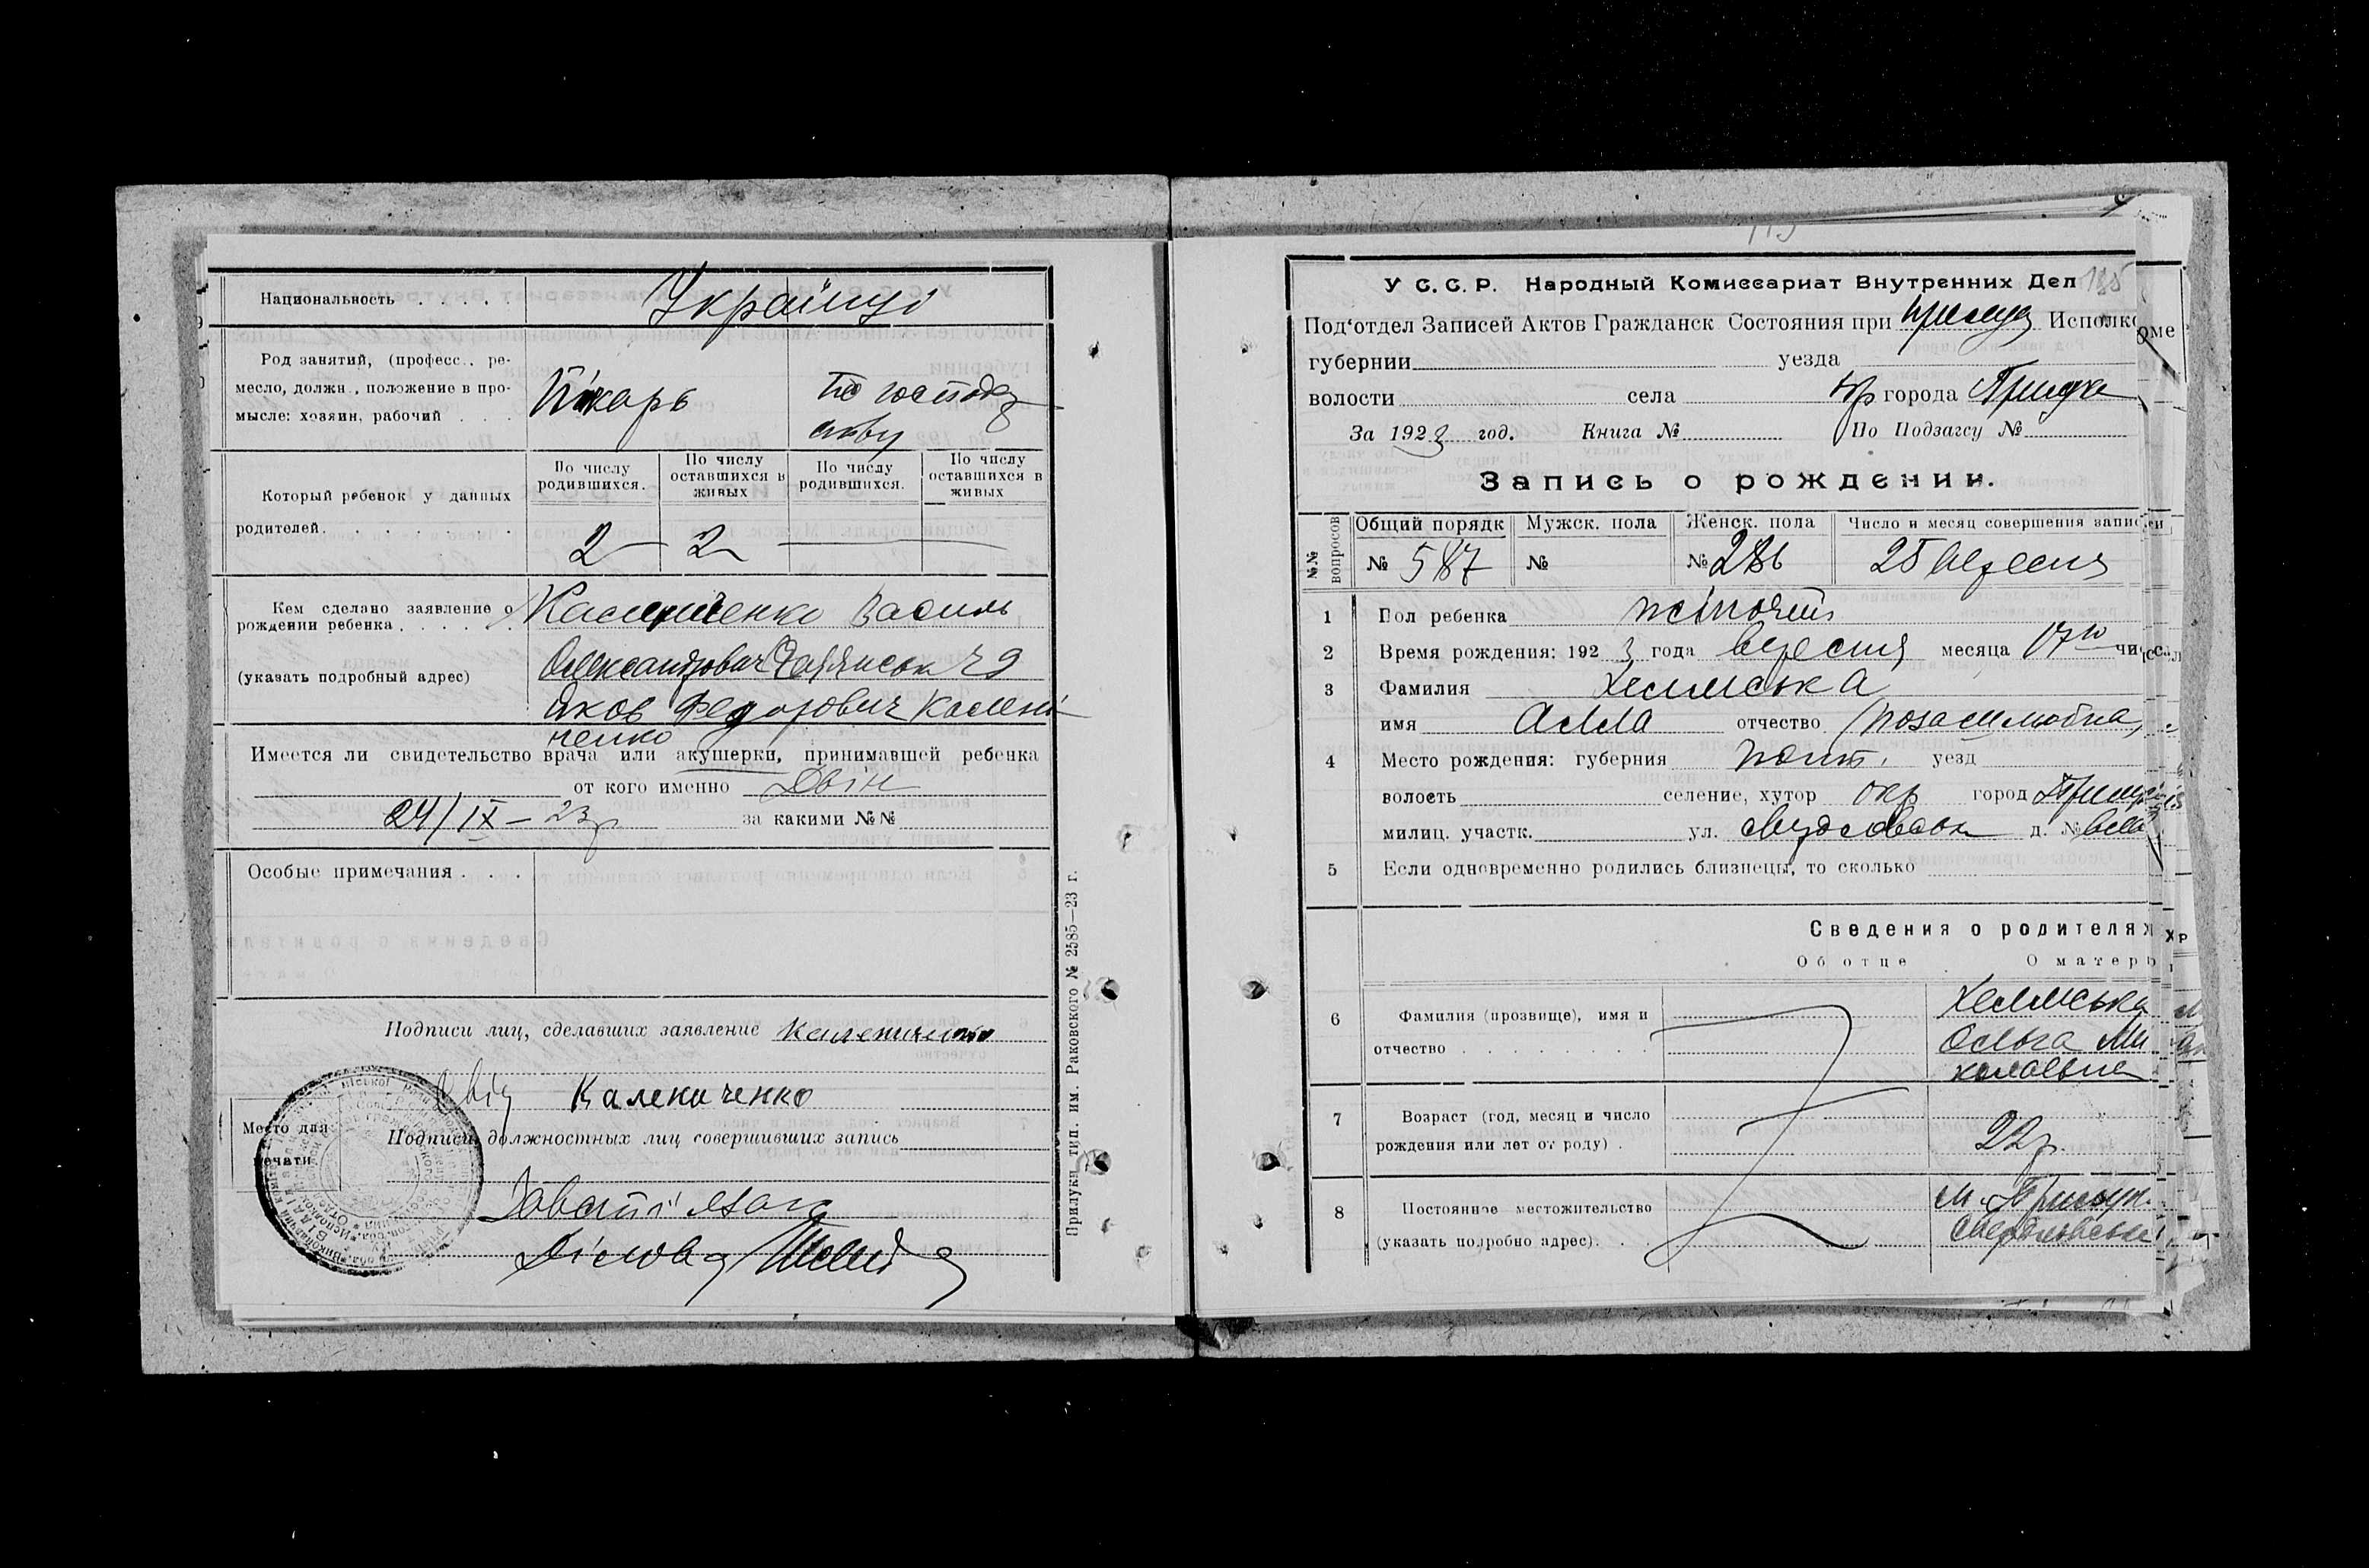 Национальность . . . . . Українці
Род занятий, (професс., ре-
месло, должн., положение в про-
мысле: хозяин, рабочий . . .
Пікарь
по господар
ству
Который ребенок у данных
родителей . . . . . . .
По числу
родившихся.
По числу
оставшихся в
живых
По числу
родившихся.
По числу
оставшихся в
живых
2 — 2
Кем сделано заявление о
рождении ребенка . . . . .
(указать подробный адрес)
Василь
Олександрович 49
Яков Федорович Калени
ченко
Имеется ли свидетельство врача или акушерки, принимавшей ребенка
от кого именно Двін
24/IX – 23р за какими №№
Особые примечания . . . .
Подписи лиц, сделавших заявление Калениченко
Каленаченко
Место для
печати
Подписи должностных лиц совершивших запись
Завстіл
Діловод
Прилуки тип. им. Раковского № 2585—23 г.
185
У С. С. Р. Народный Комиссариат Внутренних Дел
Под‘отдел Записей Актов Гражданск Состояния при Прилуц Исполко
губернии уезда
волости села города Прилука
За 1923 год. Книга № По Подзагсу №
Запись о рождении.
№№ вопросов
Общий порядк
№ 587
Мужск. пола
№
Женск. пола
№ 286
Число и месяц совершения записи
25 вересня
1 Пол ребенка жіночий
2 Время рождения: 1923 года вересня месяца 17го числа
3 Фамилия Хелмська
имя Алла отчество (позашлюбна)
4 Место рождения: губерния Полт. уезд
волость селение, хутор окр город Прилука
милиц. участк. ул. д. №
5 Если одновременно родились близнецы, то сколько
Сведения о родителях
Об отце О матери
6 Фамилия (прозвище), имя и
отчество . . . . . . . .
Хелмська
Ольга Ми
колаевна
7 Возраст (год, месяц и число
рождения или лет от роду) .
22р.
8 Постоянное местожительство
(указать подробно адрес). . .
м. Прилук.